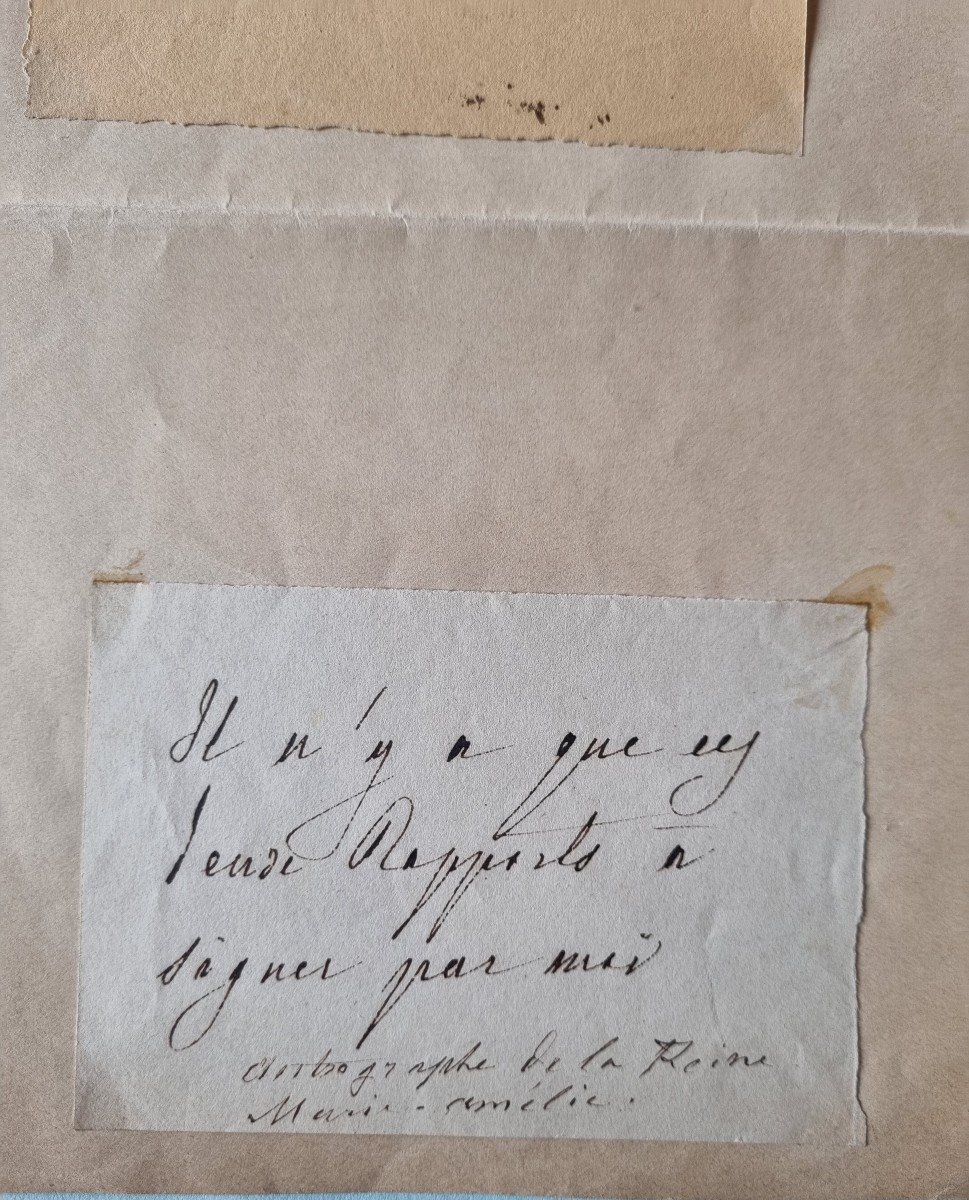 Il n'y a que ces
deux Rapports à
signer par moi
autographe de la Reine
Marie-amélie.